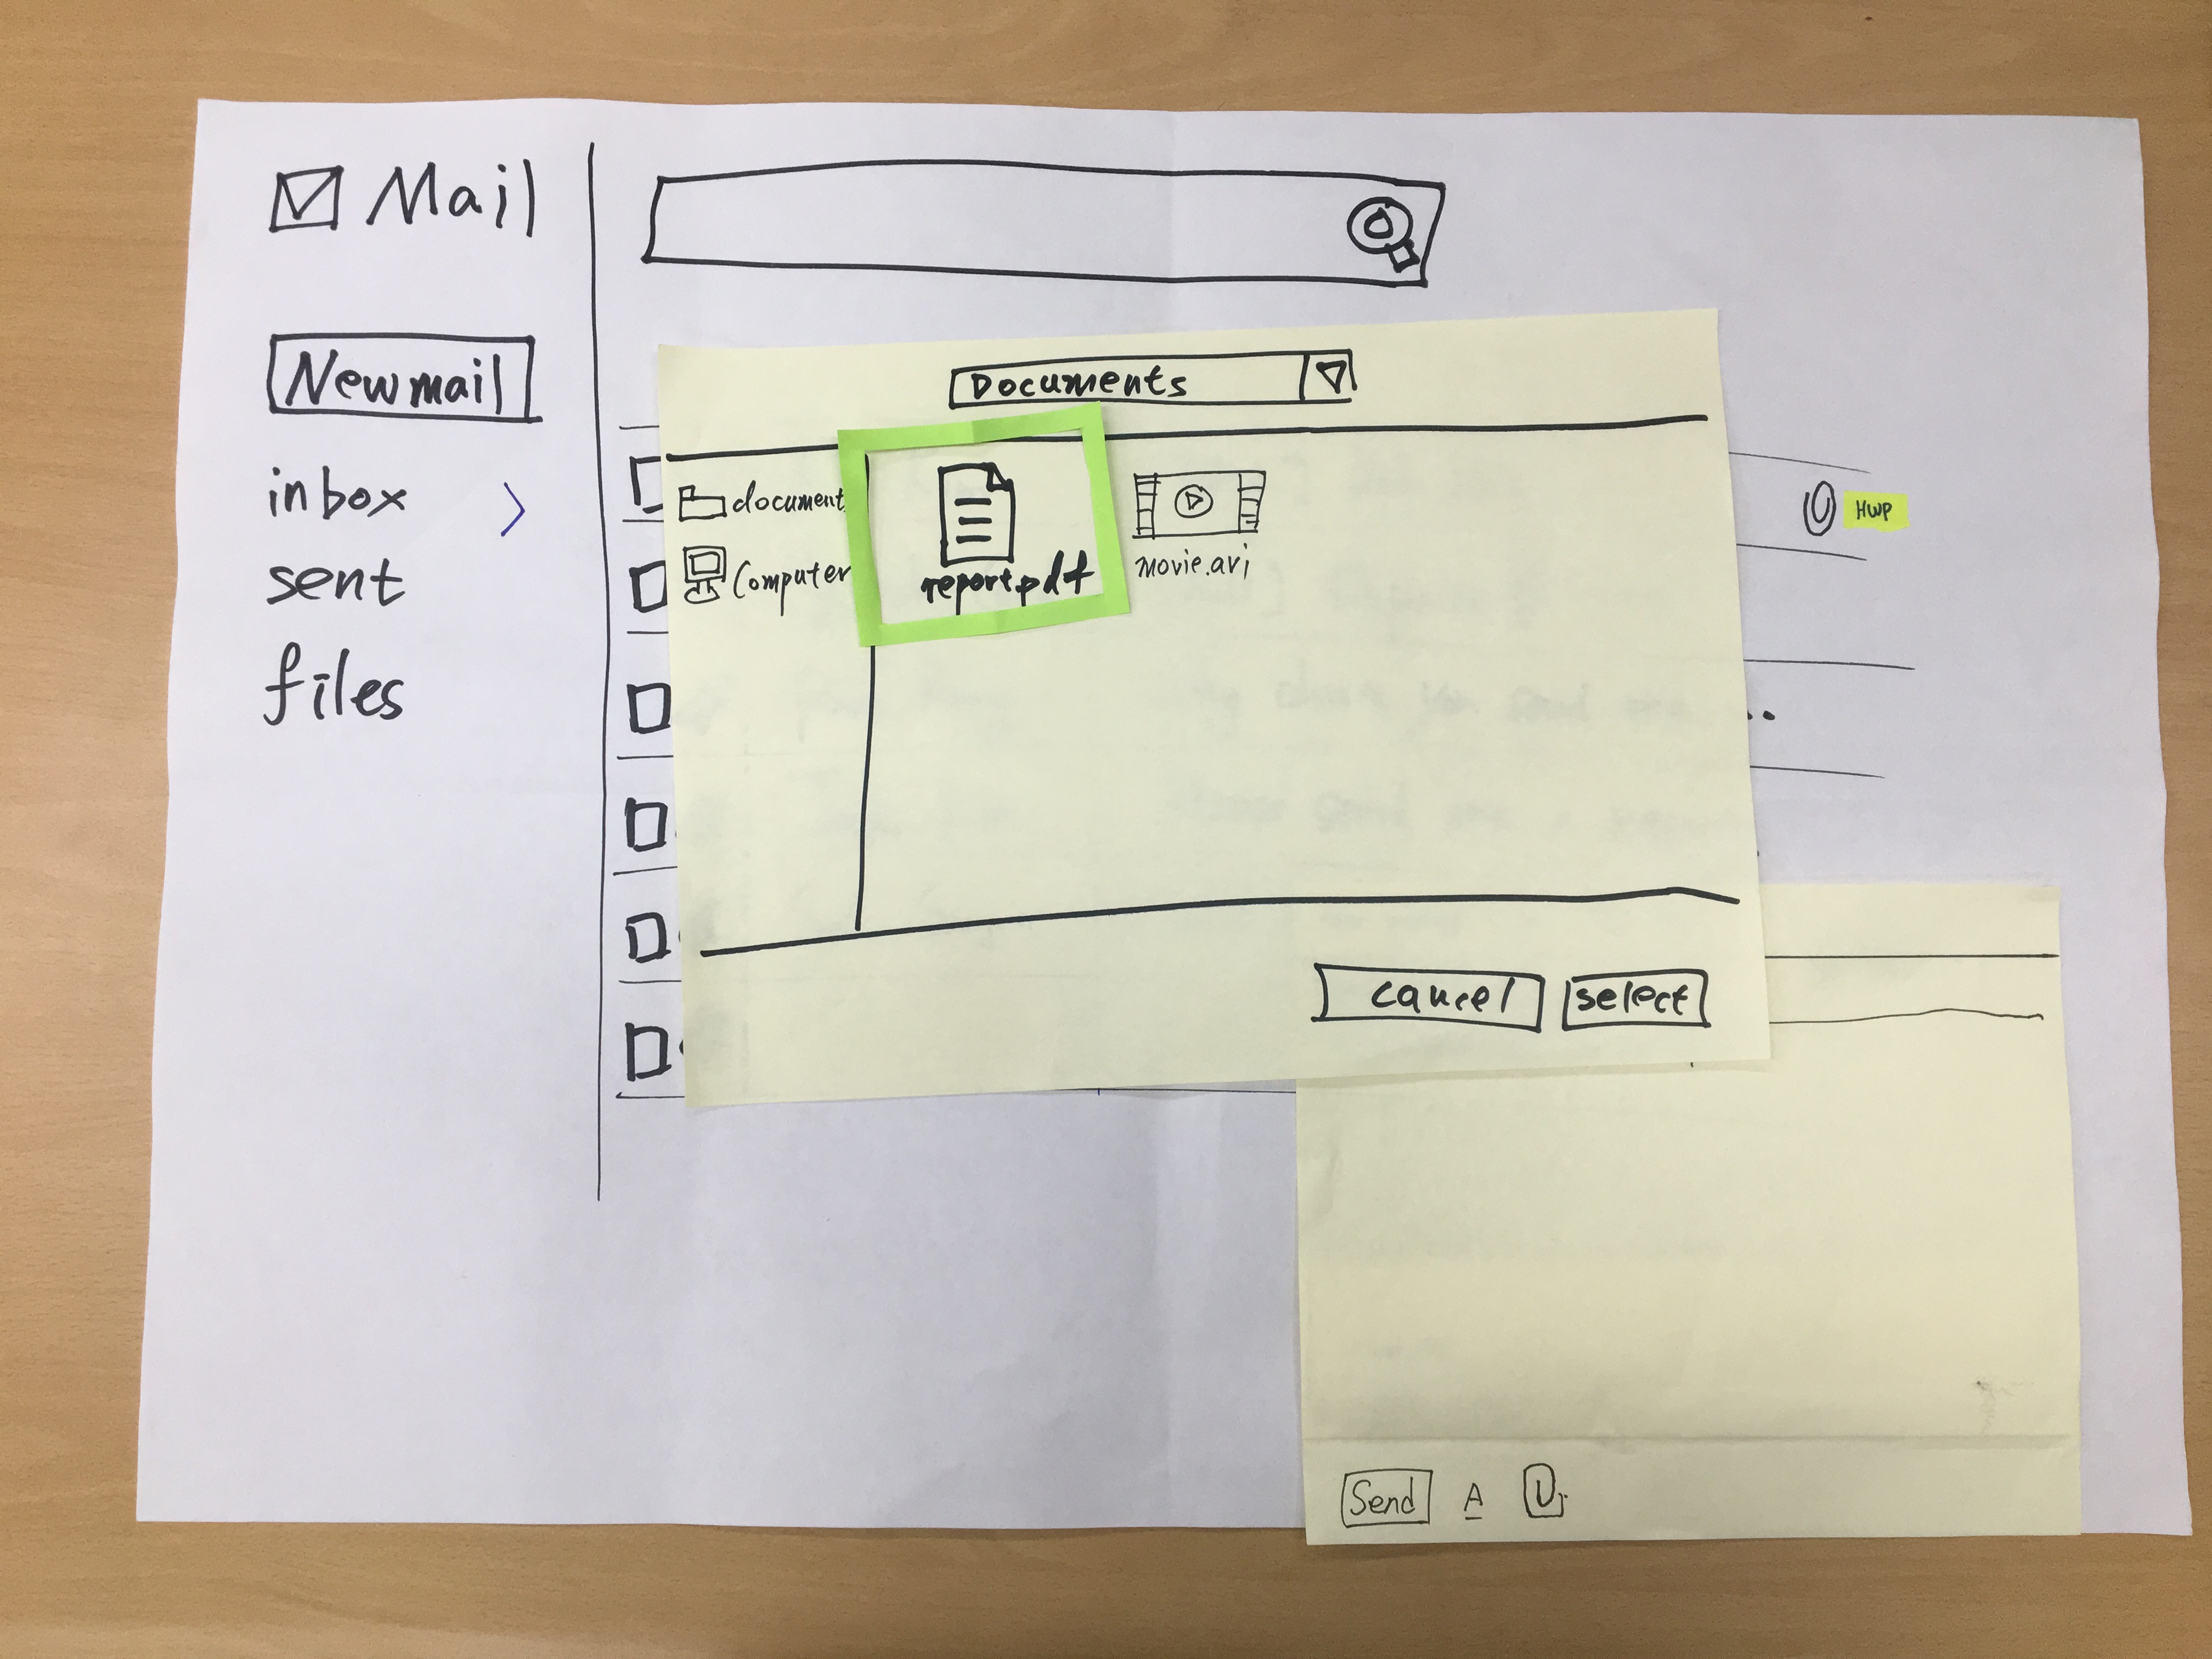 Mail
New mail
inbox >
sent
files
Documents
document
Computer
report.pdf
movie.avi
HWP
cancel
select
Send A